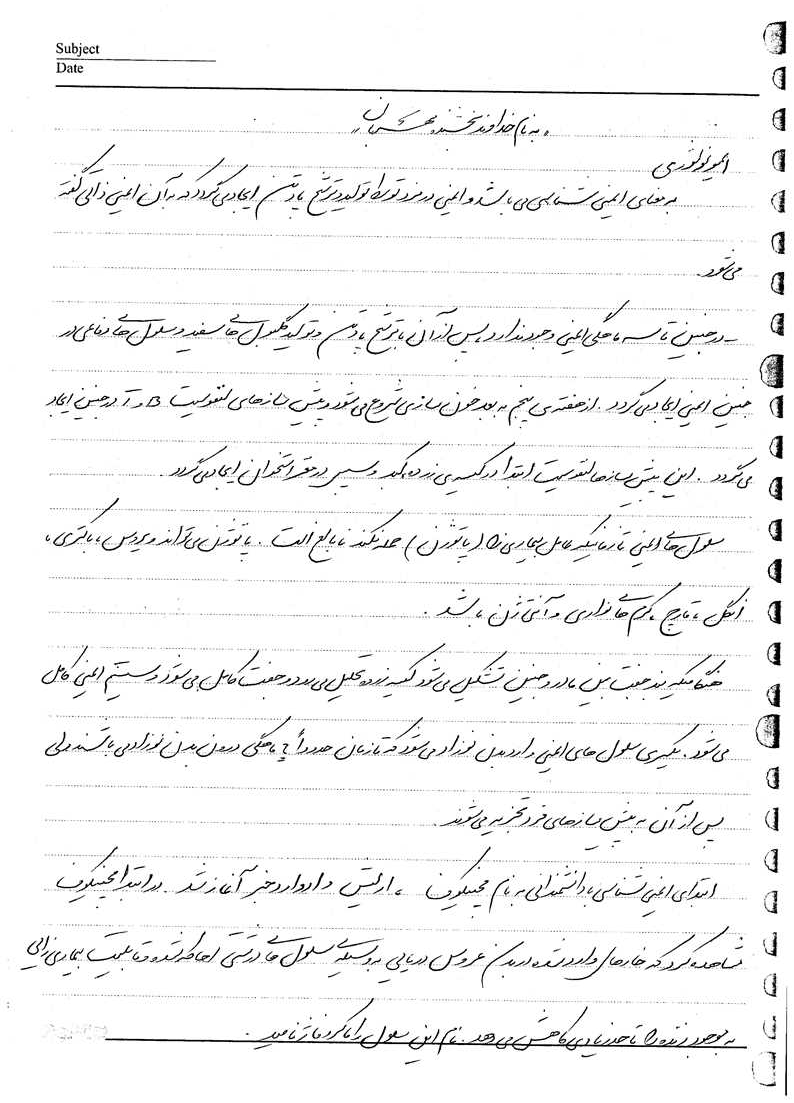 Subject
Date
«به نام خداوند بخشنده مهربان»
ایمونولوژی
به معنای ایمنی شناسی می باشد و ایمنی در فرد توسط تولید و ترشح پادتن ایجاد می گردد که به آن ایمنی ذاتی گفته
می شود.
- در جنین تا سه ماهگی ایمنی وجود ندارد، پس از آن با ترشح پادتن و تولید گلبول های سفید و سلول های دفاعی در
جنین ایمنی ایجاد می گردد. از هفته ی پنجم به بعد خون سازی شروع می شود و پیش سازهای لنفوسیت B و T در جنین ایجاد
می گردد. این پیش سازها لنفوسیت ابتدا در کیسه ی زرده، کبد و سپس در مغز استخوان ایجاد می گردد.
سلول های ایمنی تا زمانیکه عامل بیماری زا (پاتوژن) حمله نکند نابالغ است. پاتوژن می تواند ویروس، باکتری،
انگل، قارچ، کرم های نواری و آنتی ژن باشد.
هنگامیکه بند جفت بین مادر و جنین تشکیل می شود کیسه زرده تحلیل می رود و جفت کامل می شود و سیستم ایمنی کامل
می شود. یکسری سلول های ایمنی وارد بدن نوزاد می شود که تا زمان حدوداً ماهگی درون بدن نوزاد می باشند ولی
پس از آن به پیش سازهای فرد تجزیه می شوند.
ابتدای ایمنی شناسی با دانشمندانی به نام مچنیکوف، ارلیش و ادوارد جنر آغاز شد. در ابتدا مچنیکوف
مشاهده کرد که خارهای وارد شده در بدن عروس دریایی به وسیله ی سلول های درشتی احاطه شده و قابلیت بیماری زایی
به موجود زنده را تا حد زیادی کاهش می دهد. نام این سلول را ماکروفاژ نامید.